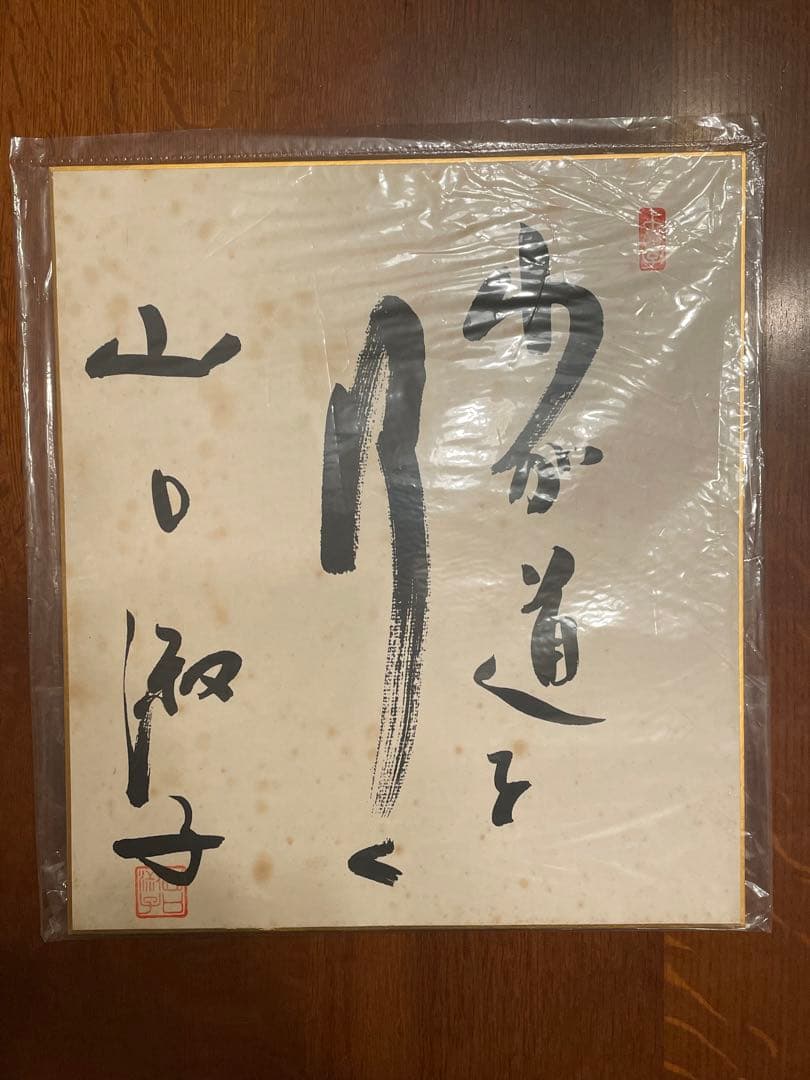 わが道を
行く
山口淑子